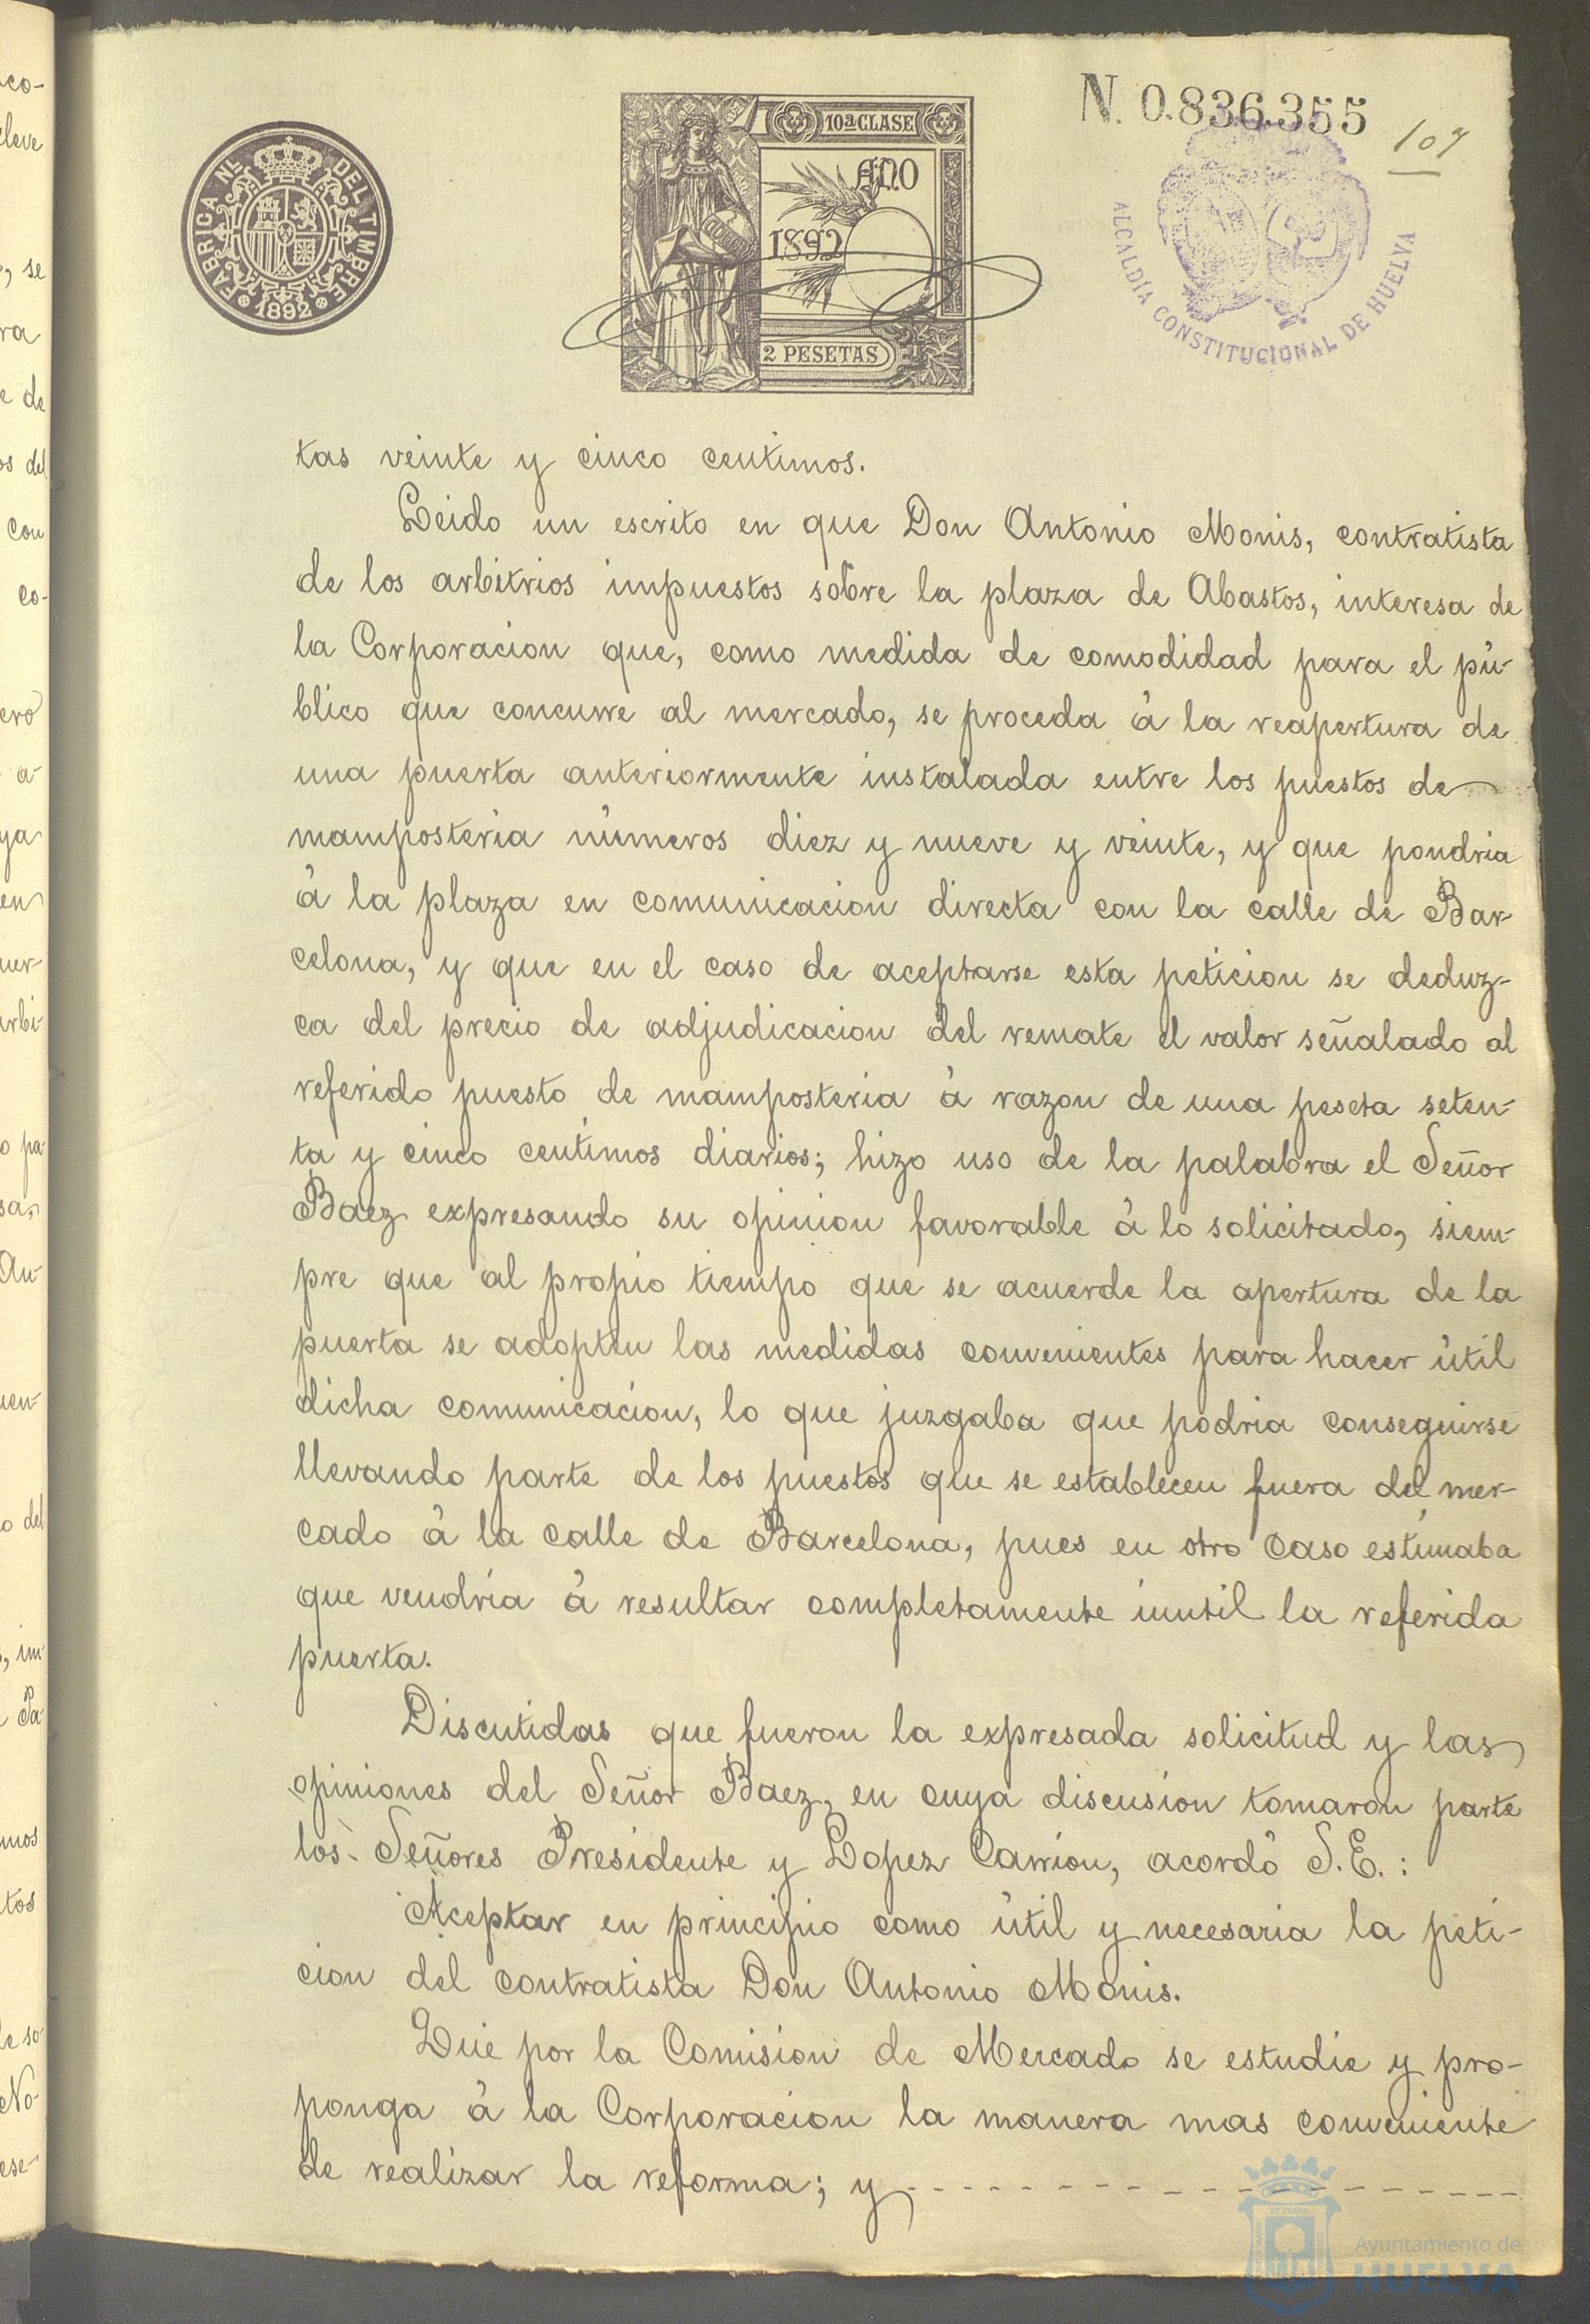 N. 0.836.355
109
FABRICA NL. DEL TIMBRE
1892
10ª CLASE
AÑO
1892
2 PESETAS
ALCALDÍA CONSTITUCIONAL DE HUELVA
tas veinte y cinco centimos.
Leido un escrito en que Don Antonio Monis, contratista
de los arbitrios impuestos sobre la plaza de Abastos, interesa de
la Corporacion que, como medida de comodidad para el pú-
blico que concurre al mercado, se proceda á la reapertura de
una puerta anteriormente instalada entre los puestos de
mamposteria números diez y nueve y veinte, y que pondria
á la plaza en comunicacion directa con la calle de Bar-
celona, y que en el caso de aceptarse esta peticion se deduz-
ca del precio de adjudicacion del remate el valor señalado al
referido puesto de mamposteria á razon de una peseta seten-
ta y cinco centimos diarios; hizo uso de la palabra el Señor
Baez expresando su opinion favorable á lo solicitado, siem-
pre que al propio tiempo que se acuerde la apertura de la
puerta se adopten las medidas convenientes para hacer útil
dicha comunicacion, lo que juzgaba que podria conseguirse
llevando parte de los puestos que se establecen fuera del mer-
cado á la calle de Barcelona, pues en otro caso estimaba
que vendria á resultar completamente inutil la referida
puerta.
Discutidas que fueron la expresada solicitud y las
opiniones del Señor Baez, en cuya discusion tomaron parte
los Señores Presidente y Lopez Carrion, acordó S.E.:
Aceptar en principio como útil y necesaria la peti-
cion del contratista Don Antonio Monis.
Que por la Comision de Mercado se estudie y pro-
ponga á la Corporacion la manera mas conveniente
de realizar la reforma; y
Ayuntamiento de
HUELVA